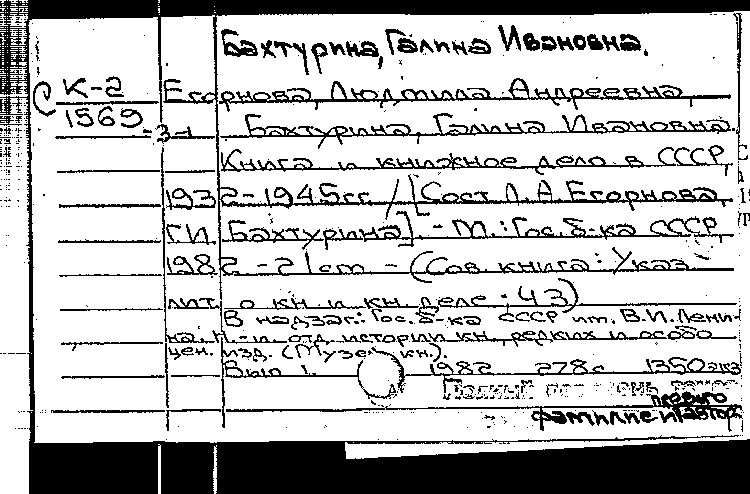 Бахтурина, Галина Ивановна.
К-2
1569 -3-1
Егорнова, Людмила Андреевна,
Бахтурина, Галина Ивановна.
Книга и книжное дело в СССР,
1932-1945гг. / [Сост. Л.А. Егорнова,
Г.И. Бахтурина]. - М.: Гос. б-ка СССР,
1982. - 21 cm. - (Сов. книга: Указ.
лит. о кн. и кн. деле; 43)
В надзаг.: Гос. б-ка СССР им. В.И. Лени-
на. Н.-и. отд. истории кн., редких и особо
цен. изд. (Музей кн.).
Вып 1. 1982 278с 1350экз
Полный
первого
фамилией автора